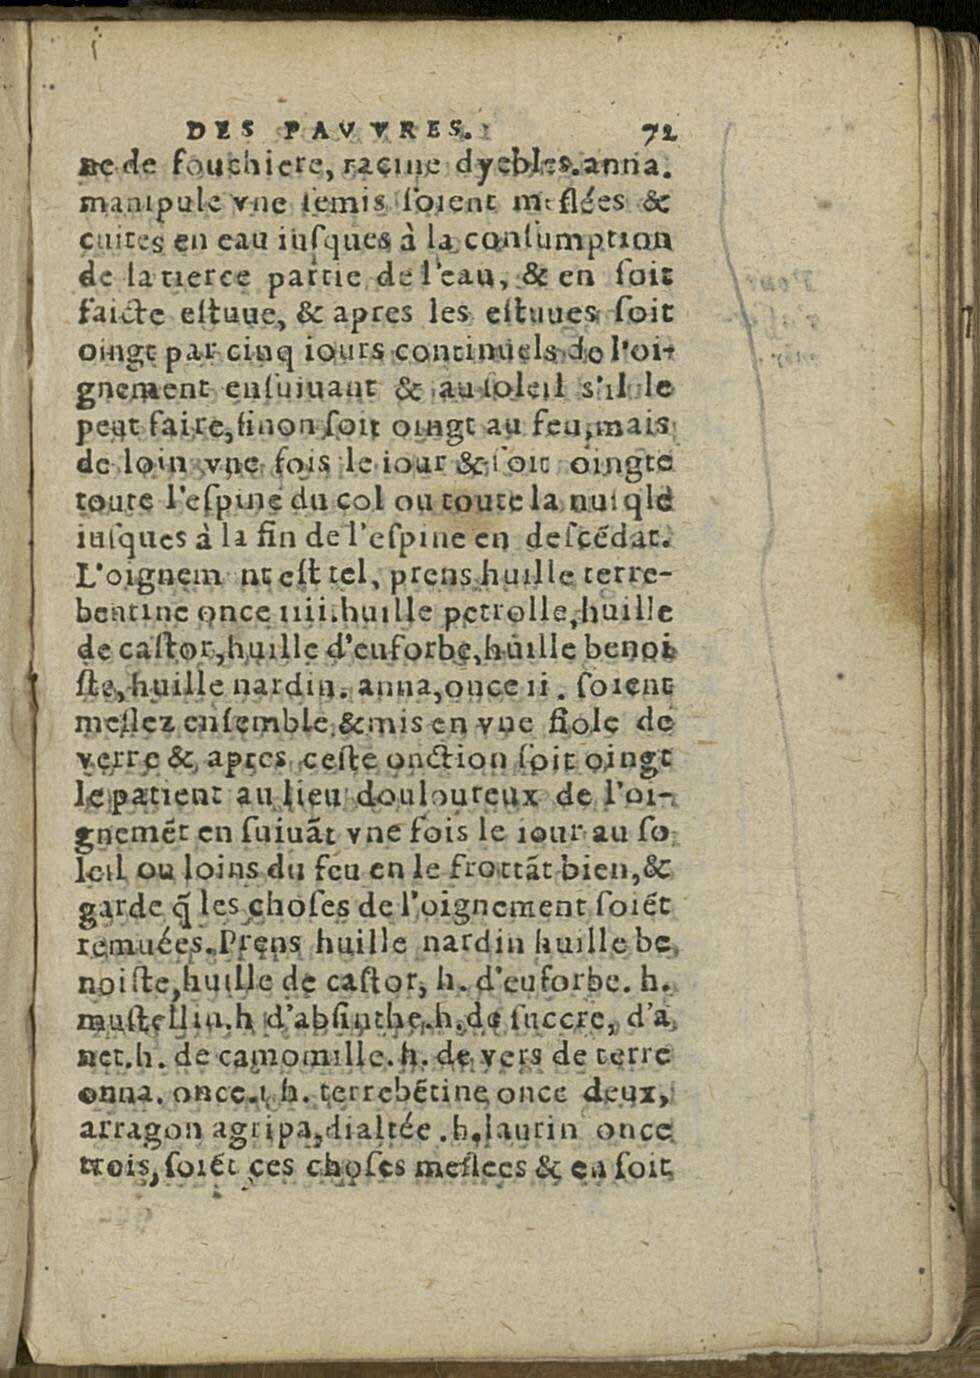 DES PAVVRES. 72
ne de fouchiere, racine dyebles. anna.
manipule vne ſemis ſoient meſlées &
cuites en eau iuſques à la conſumption
de la tierce partie de l'eau, & en ſoit
faicte eſtuue, & apres les eſtuues ſoit
oingt par cinq iours continuels de l'oi-
gnement enſuiuant & au ſoleil s'il le
peut faire, ſinon ſoit oingt au feu, mais
de loin vne fois le iour & ſoit oingte
toute l'eſpine du col ou toute la nuiqle
iuſques à la fin de l'eſpine en deſcẽdat.
L'oignem nt eſt tel, prens huille terre-
bentine once iiii. huille petrolle, huille
de caſtor, huille d'euforbe, huille benoi
ſte, huille nardin. anna, once ii. ſoient
meſlez enſemble, & mis en vne fiole de
verre & apres ceſte onction ſoit oingt
le patient au lieu douloureux de l'oi-
gnemẽt en ſuiuãt vne fois le iour au ſo
leil ou loins du feu en le frottãt bien, &
garde q̃ les choſes de l'oignement ſoiẽt
remuées. Prens huille nardin huille be
noiſte, huille de caſtor, h. d'euforbe. h.
muſtellin. h d'abſinthe. h. de ſuccre, d'a
net. h. de camomille. h. de vers de terre
onna. once. i h. terrebẽtine once deux,
arragon agripa, dialtée. h. laurin once
trois, ſoiẽt ces choſes meſlees & en ſoit